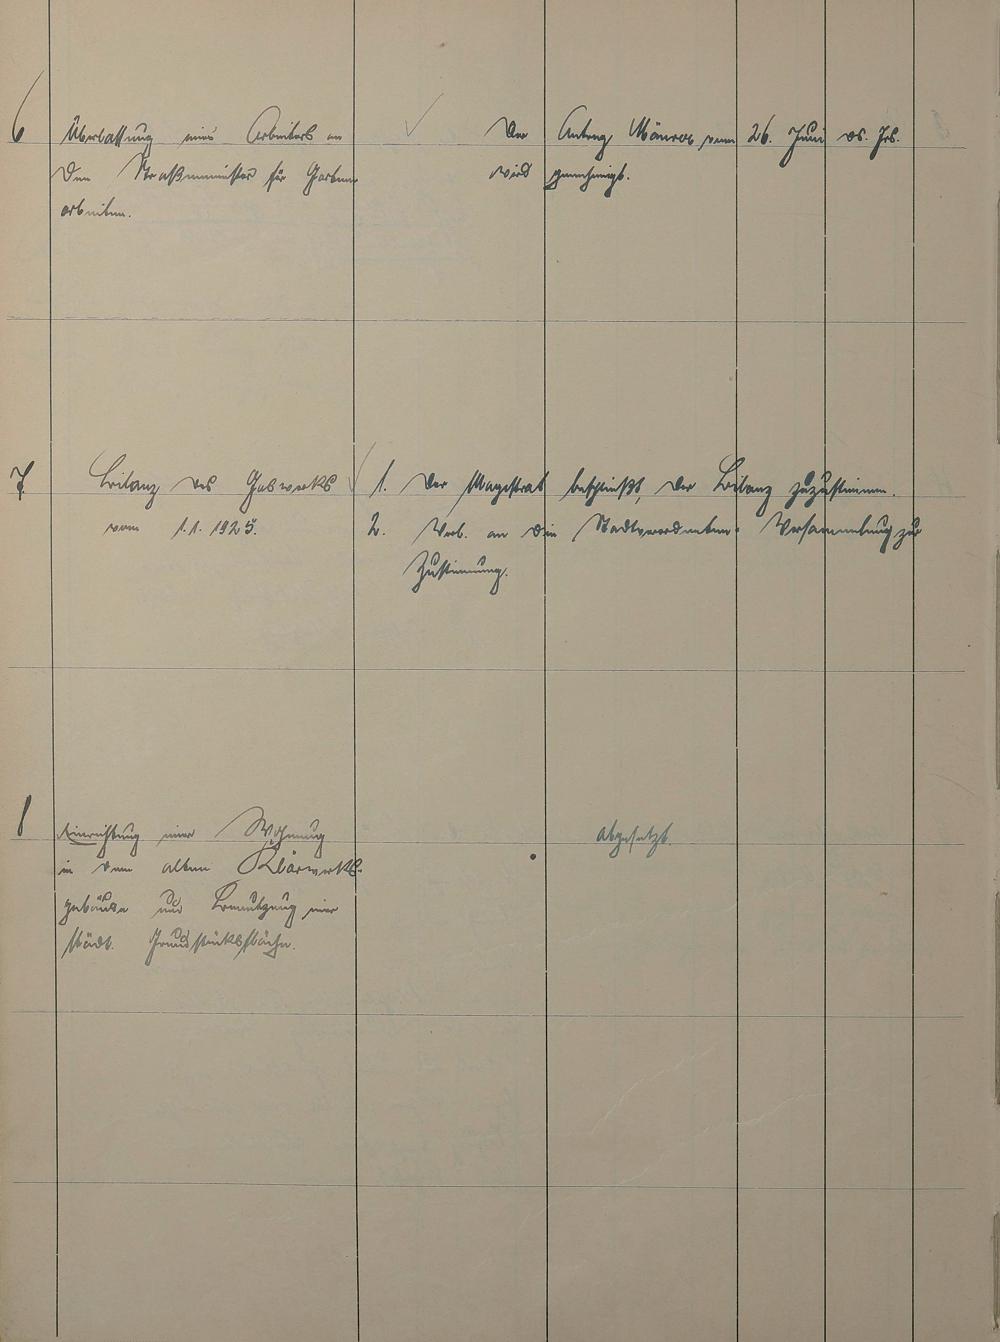 6 Überlassung eines Arbeiters an
den Straßenmeister für Garten
arbeiten.
Der Antrag vom 26. Juni ds. Jrs.
wird genehmigt.
7 Bilanz des Gaswerks
vom 1.1.1925.
1. Der Magistrat beschließt, der Bilanz zuzustimmen.
2. an die Stadtverordneten-Versammlung zur
Zustimmung.
8 Einrichtung einer Wohnung
in dem alten Klärwerks-
gebäude und Benutzung einer
städt. Grundstücksfläche.
Abgesetzt.